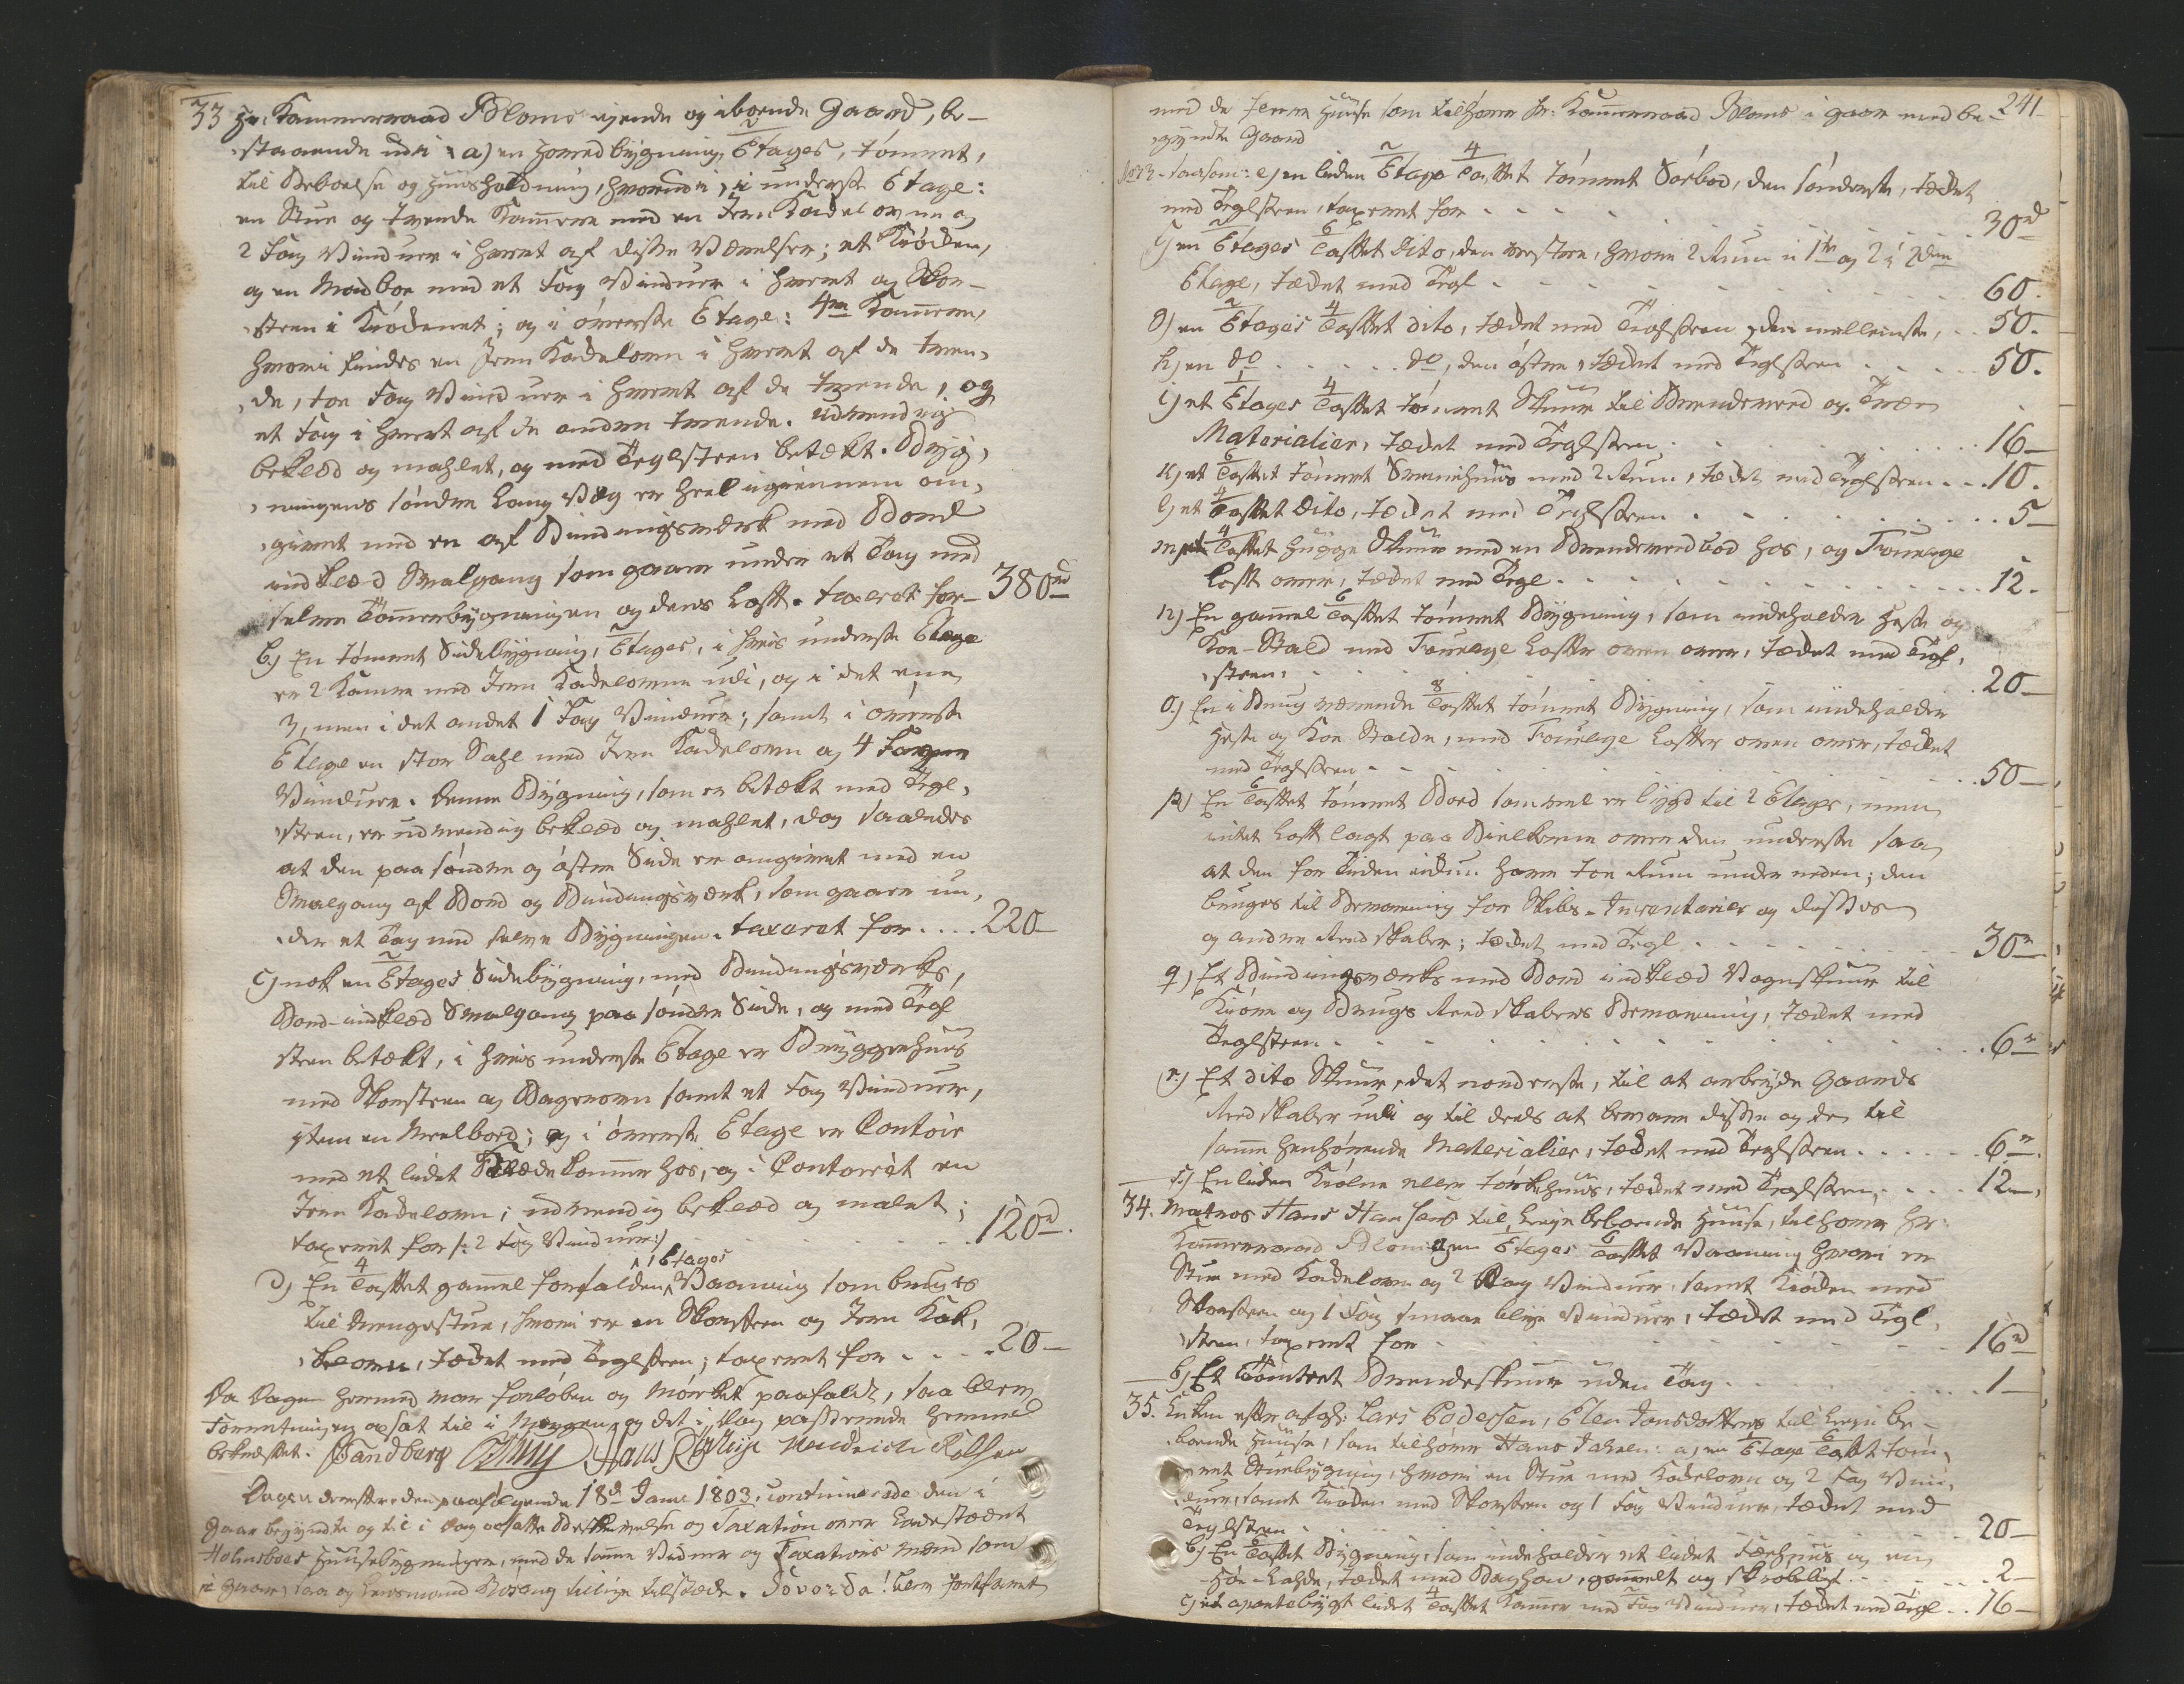 33 Hr: Kammerraad Bloms ejende og iboende Gaard, be-
staaende udi: a) en Hovedbygning, 2 Etages, tómmret,
til Beboelse og Huusholdning, hvorudi, i underste Etage:
en Stue og tvende Kammere med en Jern Kackelovn og
2 Fag Vinduer i hvert af disse Værelser; et Kiøcken,
og en Madboe med et Fag Vinduer i hvert og Skor-
steen i Kiøckenet; og i óverste Etage: 4re Kammere,
hvorri findes en Jern Kackelovn i hvert af de tven-
de, toe Fag Vinduer i hvert af de tvende, og
et Fag i hvert af de andre tvende. Udvendig
beklæd og mahlet, og med Teglsteen betækt. Byg-
ningens søndre Lang Væg er heel igiennem om-
givet med en af Bindingsværk med Bord
indklæd Svalgang som gaaer under et Tag med
selve Tømmerbygningen og dens Loft. taxeret for - 380rd
b) En tómmret Sidebygning, 2 Etages, i hvis underste Etage
er 2 Kamre med Jern Kackelovne udi, og i det ene
3, men i det andet 1 Fag Vinduer; samt i óverste
Etage en stor Sahl med Jern Kackelovn og 4 Fag
Vinduer. Denne Bygning, som er betækt med Tegl-
steen, er udvendig beklæd og mahlet, dog saaledes
at den paa søndre og østre Side er omgivet med en
Svalgang af Bord og Bindingsværk, som gaaer un-
der et Tag med selve Bygningen. taxeret for .... 220-
c) nok en 2 Etages Sidebygning, med Bindingsværks,
Bord-indklæd Svalgang paa søndre Side, og med Tegl
steen betækt, i hvis underste Etage er Bryggerhuus
med Skorsteen og Bagerovn samt et Fag Vinduer,
item en Meelbod; og i óverste Etage er Contoir
med et lidet Klædekammer hos, og i Contoiret en
Jern Kackelovn; udvendig beklæd og malet;
taxeret for /: 2 Fag Vinduer :/ ... 120rd.
1 Etages
d) En 4 Laftet gammel forfalden Vaaning som bruges
til Drengestue, hvori er en Skorsteen og Jern Kak-
kelovn, tæcket med Teglsteen; taxeret for .... 20-
Da Dagen hermed var forløben og Mørket paafaldt, saa blev
Forretningen opsat til i Morgen, og det i Dag passerede hermed
bekræftet. Sandberg Hans Hendrich
Dagen derefter den paafølgende 18de Jan: 1803, continuerede den i
Gaar begyndte og til i Dag opsatte Beskrivelse og Taxation over Ladestædet
Holmsboes Huusebygninger, med de samme Vidner og Taxations Mænd som
i Gaar, saa og Lensmand tillige tilstæde. Hvorda! blev fortfaret
241
med de flere Huuse som tilhører Hr. Kammerraad Bloms i gaar med be-
gyndte Gaard
No 33. saasom: e) en liden 2 Etage 4 Laftet tómmret Søebod, den sønderste, tæcket
med Teglsteen, taxeret for . . . . 30rd
f) en 2 Etages 6 Laftet dito, den vestere, hvori 2 Rum i 1ste og 2 i 2den
Etage, tæcket med Tegl . . . . 60.
g) en 2 Etages 4 Laftet dito, tæcket med Teglsteen, den mellemste, .. 50.
h) en do . . . . do, den østre, tæcket med Teglsteen . . . . 50.
i) et 1 Etages 4 Laftet tómmret Skuur til Brændeveed og Træe
Materialier, tæcket med Teglsteen . . . . 16-
k) et 6 Laftet tómmret Sviinehuus med 2 Rum, tæcket med Teglsteen ... 10.
l) et 4 Laftet dito, tæcket med Teglsteen . . . . 5-
m) et 4 Laftet Hugge Skuur med en Brændeveedbod hos, og Fourage
Loft over, tæcket med Tegl . . . . 12.
n) En gammel 6 Laftet tómmret Bygning, som indeholder Heste og
Koe-Stald med Fourage Lofter oven over, tæcket med Tegl-
steen, . . . . 20-
o.) En i Brug værende 8 Laftet tómmret Bygning, som indeholder
Heste og Koe Stalde, med Fourage Lofter oven over, tæcket
med Teglsteen . . . . 50-
p) En 6 Laftet tómmret Boed som vel er bygd til 2 Etager, men
intet Loft lagt paa Bielkerne over den underste saa
at den for Tiden ickun haver toe Rum under neden; den
bruges til Bevaring for Skibs-Inventarier og
og andre Redskaber; tæcket med Tegl . . . . 30"
q) Et Bindingsværks med Bord indklæd Vognskuur til
Kiøre og Brugs Redskabers Bevaring, tæcket med
Teglsteen . . . . 6"
r) Et dito Skuur, det norderste, til at arbejde Gaards
Redskaber udi og til deels at bevare disse og de til
samme henhørende Materialier, tæcket med Teglsteen . . . . 6"
s) En liden Kiølne eller Tørkehuus, tæcket med Teglsteen, . . . . 12-
34. Matros Hans Hansens til Leje beboende Huuse, tilhører Hr:
Kammerraad Blom: a) en 1 Etages 6 Laftet Vaaning hvori er
Stue med Kackelovn og 2 Fag Vinduer, samt Kiøcken med
Skorsteen og 1 Fag smaae blye Vinduer, tæcket med Tegl-
steen, taxeret for . . . . 16rd
b) Et Tømret Brændeskuur uden Tag . . . . 1-
35. Enken efter afgl: Lars Pedersen, Elen Jonsdatters til Leje be-
boende Huuse, som tilhører Hans : a) en 1 Etage 6 Laft tóm-
mret Stuebygning, hvori en Stue med Kackelovn og 2 Fag Vin-
duer, samt Kiøcken med Skorsteen og 1 Fag Vinduer, tæcket med
Teglsteen . . . . 20-
b) En 6 Laftet Bygning, som indeholder et lidet Fæehuus og en
Høe-Lahde, tæcket med Baghon, gammelt og skrøbeligt . . . . 2-
c) et aparte bygt lidet 4 Laftet Kammer med 1 Fag Vinduer, tæcket med Tegl .. 16-